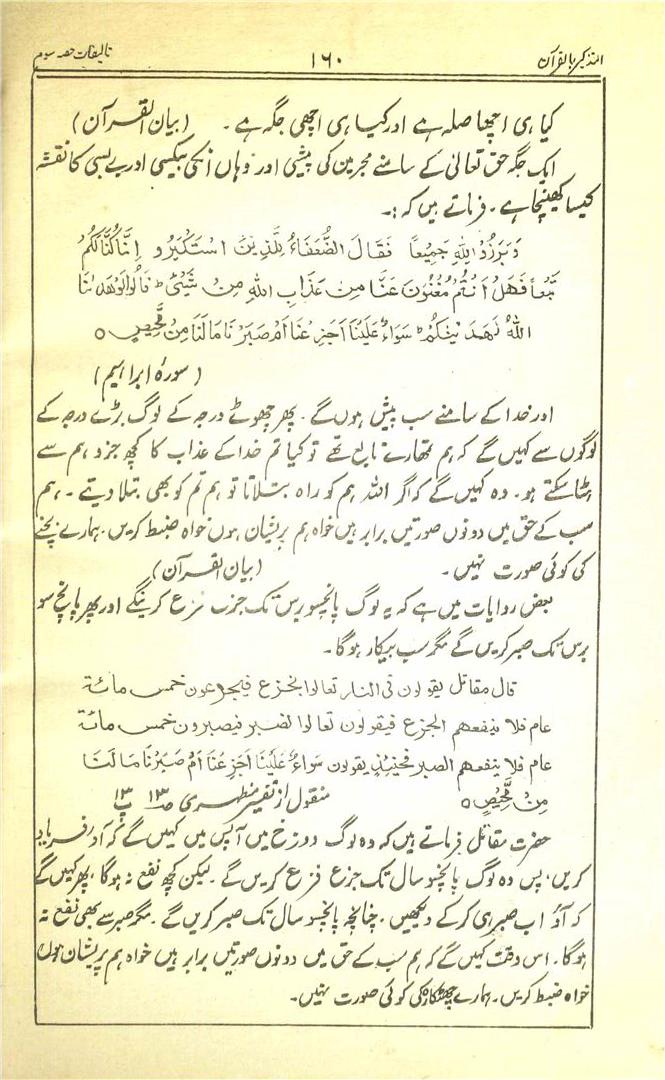 التذکیر بالقرآن ۱۶۰ تالیفات حصہ سوم
کیا ہی اچھا صلہ ہے اور کیا ہی اچھی جگہ ہے۔ (بیان القرآن)
ایک جگہ حق تعالیٰ کے سامنے مجرمین کی پیشی اور وہاں انکی بیکسی اور بے بسی کا نقشہ
کیسا کھینچا ہے۔ فرماتے ہیں کہ :۔
وَبَرَزُوْ لِلّٰهِ جَمِيْعًا فَقَالَ الضُّعَفَاءُ لِلَّذِيْنَ اسْتَكْبَرُو اِنَّا كُنَّا لَكُمْ
تَبَعاً فَهَلْ اَنْتُمْ مُغْنُوْنَ عَنَّا مِنْ عَذَابِ اللّٰهِ مِنْ شَيْئٍ ط قَالُوْا لَوْ هَدٰىنَا
اللّٰهُ لَهَدَيْنٰكُمْ ط سَوَاءٌ عَلَيْنَا اَجَزِعْنَا اَمْ صَبَرْنَا مَا لَنَا مِنْ مَّحِيْصٍ ٥
(سورہ ابراہیم)
اور خدا کے سامنے سب پیش ہوں گے۔ پھر چھوٹے درجہ کے لوگ بڑے درجہ کے
لوگوں سے کہیں گے کہ ہم تمھارے تابع تھے تو کیا تم خدا کے عذاب کا کچھ جزو ہم سے
ہٹا سکتے ہو۔ وہ کہیں گے کہ اگر اللہ ہم کو راہ بتلاتا تو ہم تم کو بھی بتلا دیتے۔ ہم
سب کے حق میں دونوں صورتیں برابر ہیں خواہ ہم پریشان ہوں خواہ ضبط کریں۔ ہمارے بچنے
کی کوئی صورت نہیں۔ (بیان القرآن)
بعض روایات میں ہے کہ یہ لوگ پانچسو برس تک جزع فزع کرینگے اور پھر پانچ سو
برس تک صبر کریں گے مگر سب بیکار ہوگا۔
قال مقاتل يقولون فى النار تعالوا نجزع فيجزعون خمس مائة
عام فلا ينفعهم الجزع فيقولون تعالوا نصبر فيصبرون خمس مائة
عام فلا ينفعهم الصبر فحينئذ يقولون سَوَاءٌ عَلَيْنَا اَجَزِعْنَا اَمْ صَبَرْنَا مَا لَنَا
مِنْ مَّحِيْصٍ ٥ منقول از تفسیر مظہری صـ۱۳ پـ۱۳
حضرت مقاتل فرماتے ہیں کہ وہ لوگ دوزخ میں آپس میں کہیں گے کہ آؤ فریاد
کریں، پس وہ لوگ پانچسو سال تک جزع فزع کریں گے۔ لیکن کچھ نفع نہ ہوگا، پھر کہیں گے
کہ آؤ اب صبر ہی کر کے دیکھیں، چنانچہ پانچسو سال تک صبر کریں گے۔ مگر صبر سے بھی نفع نہ
ہوگا۔ اس وقت کہیں گے کہ ہم سب کے حق میں دونوں صورتیں برابر ہیں خواہ ہم پریشان ہوں
خواہ ضبط کریں۔ ہمارے چھٹکارہ کی کوئی صورت نہیں۔